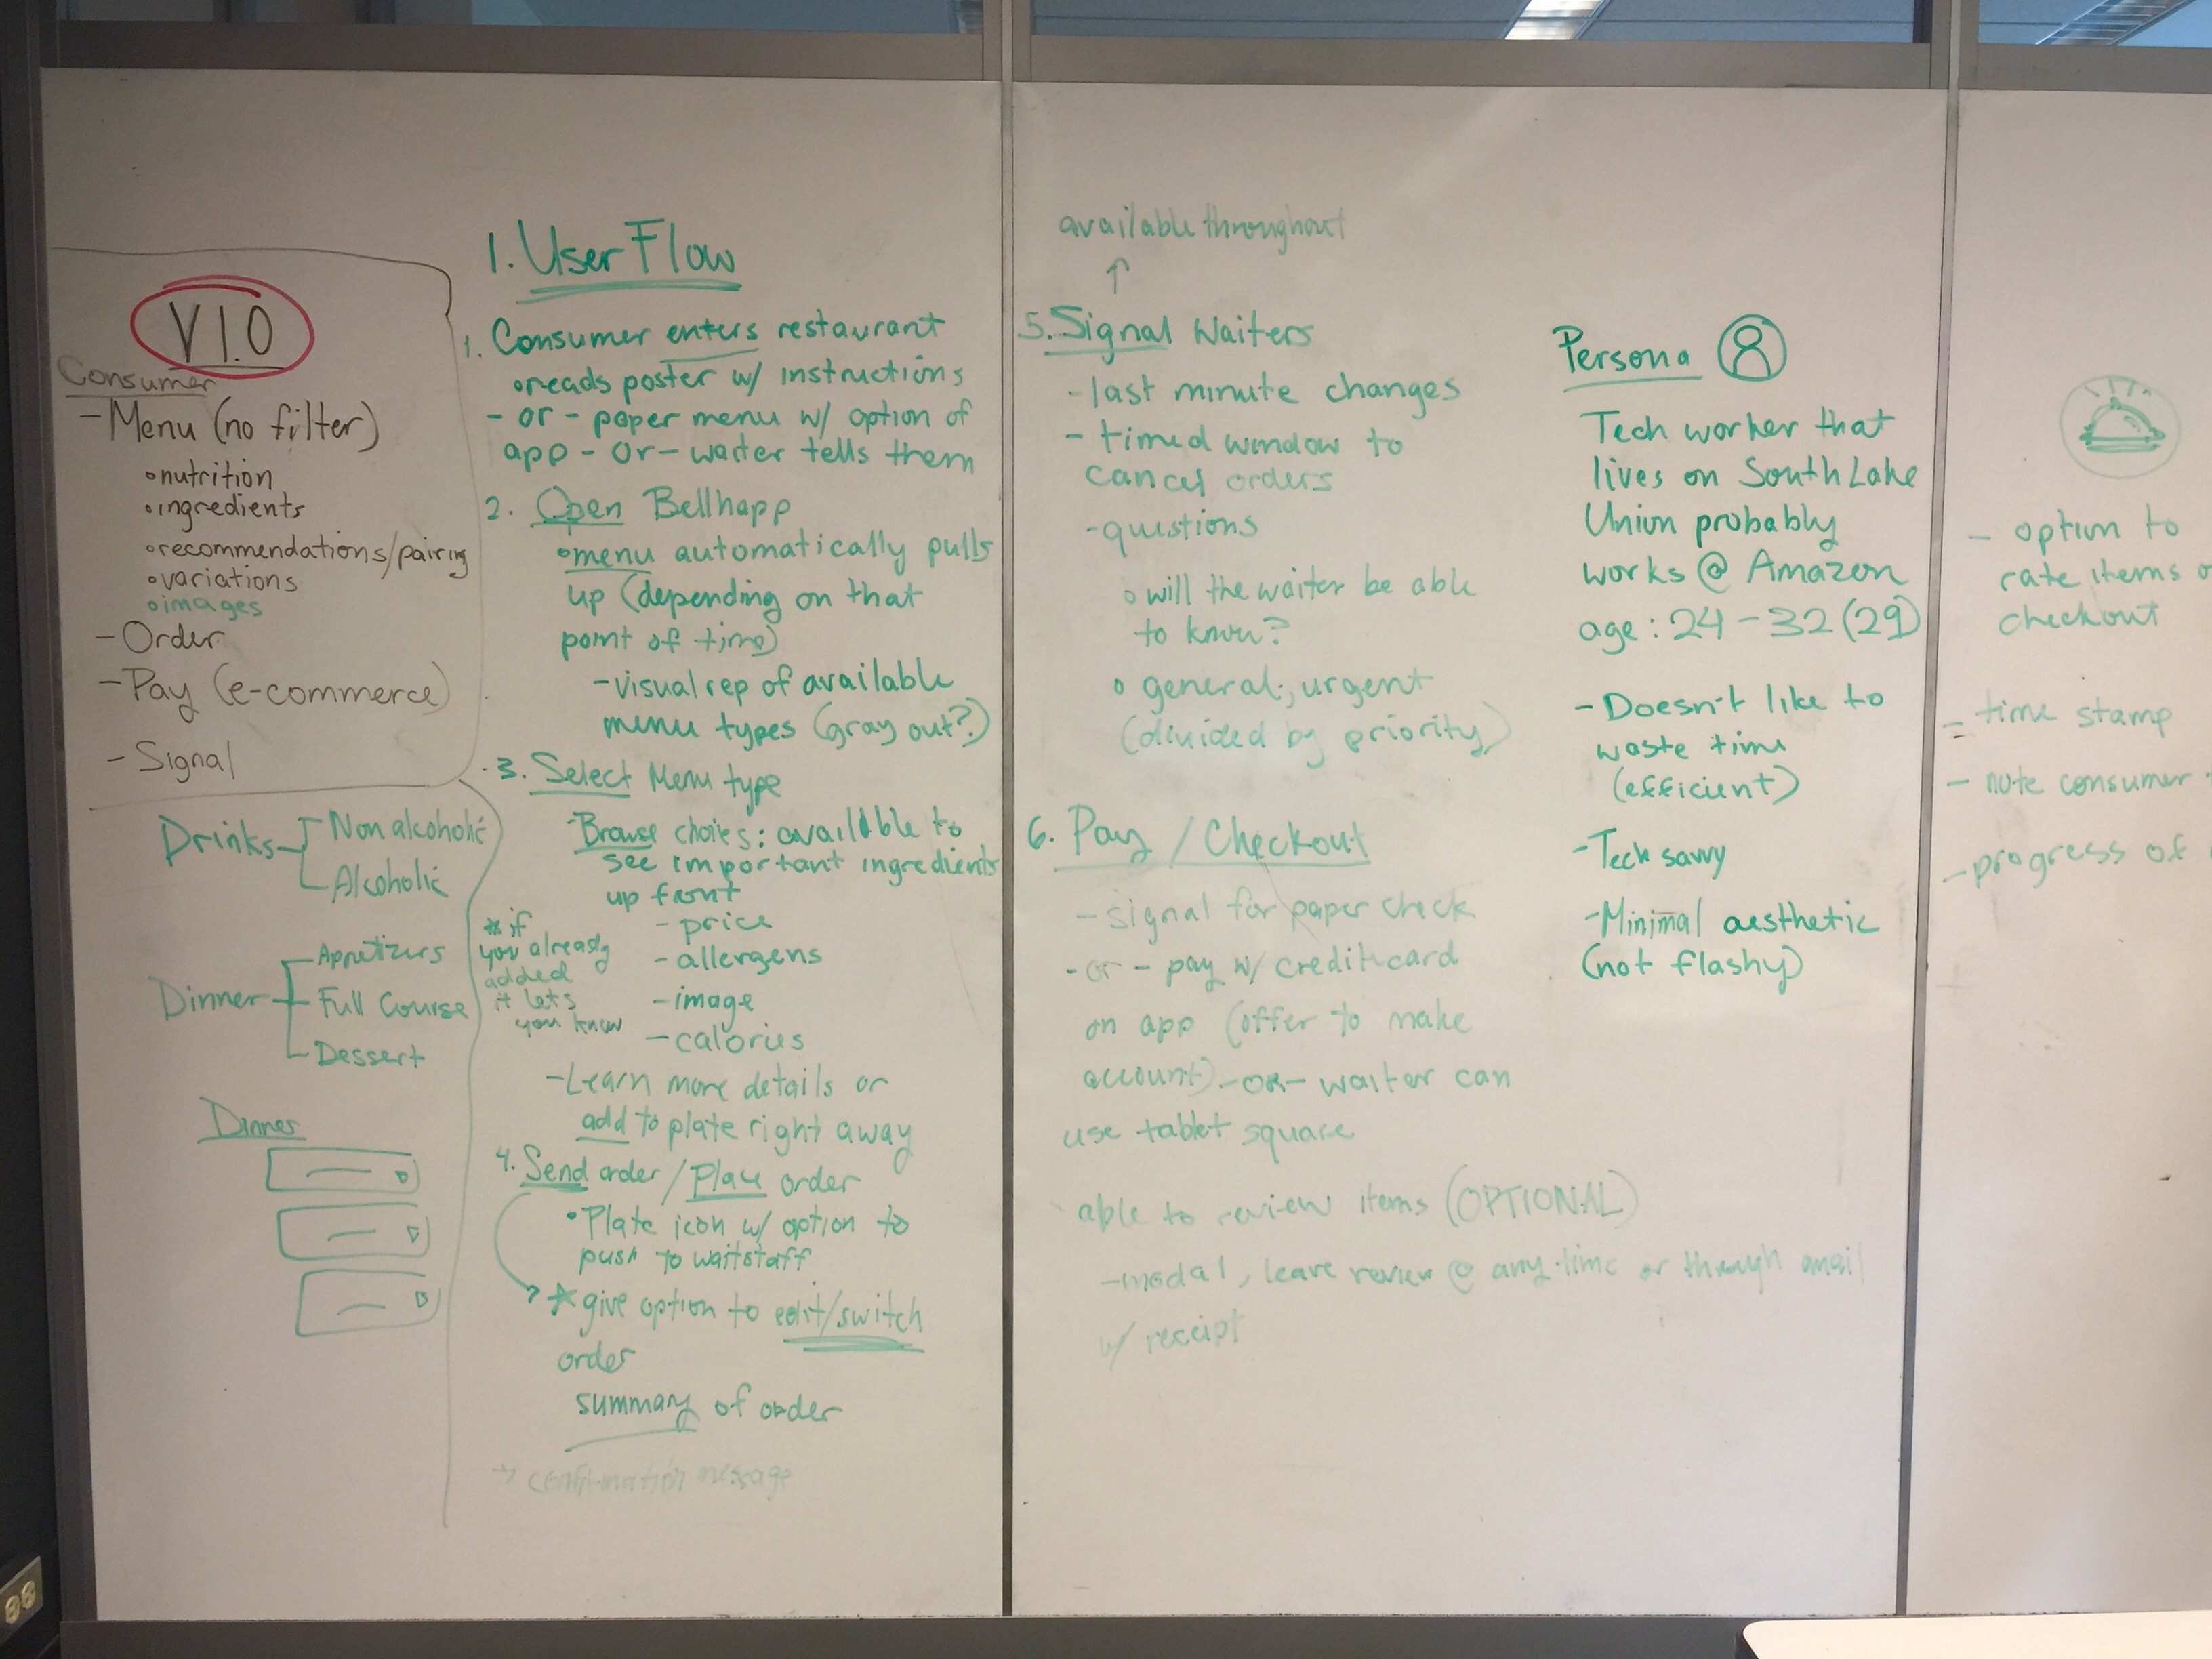 V1.0
Consumer
- Menu (no filter)
nutrition
ingredients
recommendations/pairing
variations
images
- Order
- Pay (e-commerce)
- Signal
Drinks
Non alcoholic
Alcoholic
Dinner
Appetizers
Full Course
Dessert
Dinner
1. User Flow
1. Consumer enters restaurant
reads poster w/ instructions
- or - paper menu w/ option of
app - Or - waiter tells them
2. Open Bellhapp
menu automatically pulls
up (depending on that
point of time)
- visual rep of available
menu types (gray out?)
3. Select Menu type
- Browse choices: available to
see important ingredients
up front
- price
- allergens
- image
- calories
* if
you already
added
it lets
you know
- Learn more details or
add to plate right away
4. Send order / Place order
• Plate icon w/ option to
push to waitstaff
give option to edit/switch
order
summary of order
→ confirmation message
available throughout
↑
5. Signal Waiters
- last minute changes
- timed window to
cancel orders
- questions
will the waiter be able
to know?
general; urgent
(divided by priority)
6. Pay / Checkout
- signal for paper check
- or - pay w/ credit card
on app (offer to make
account) - OR - waiter can
use tablet square
able to review items (OPTIONAL)
- modal, leave review @ any time or through email
w/ receipt
Persona
Tech worker that
lives on South Lake
Union probably
works @ Amazon
age: 24 - 32 (29)
- Doesn't like to
waste time
(efficient)
- Tech savvy
- Minimal aesthetic
(not flashy)
- option to
rate items
checkout
- time stamp
- note consumer
- progress of